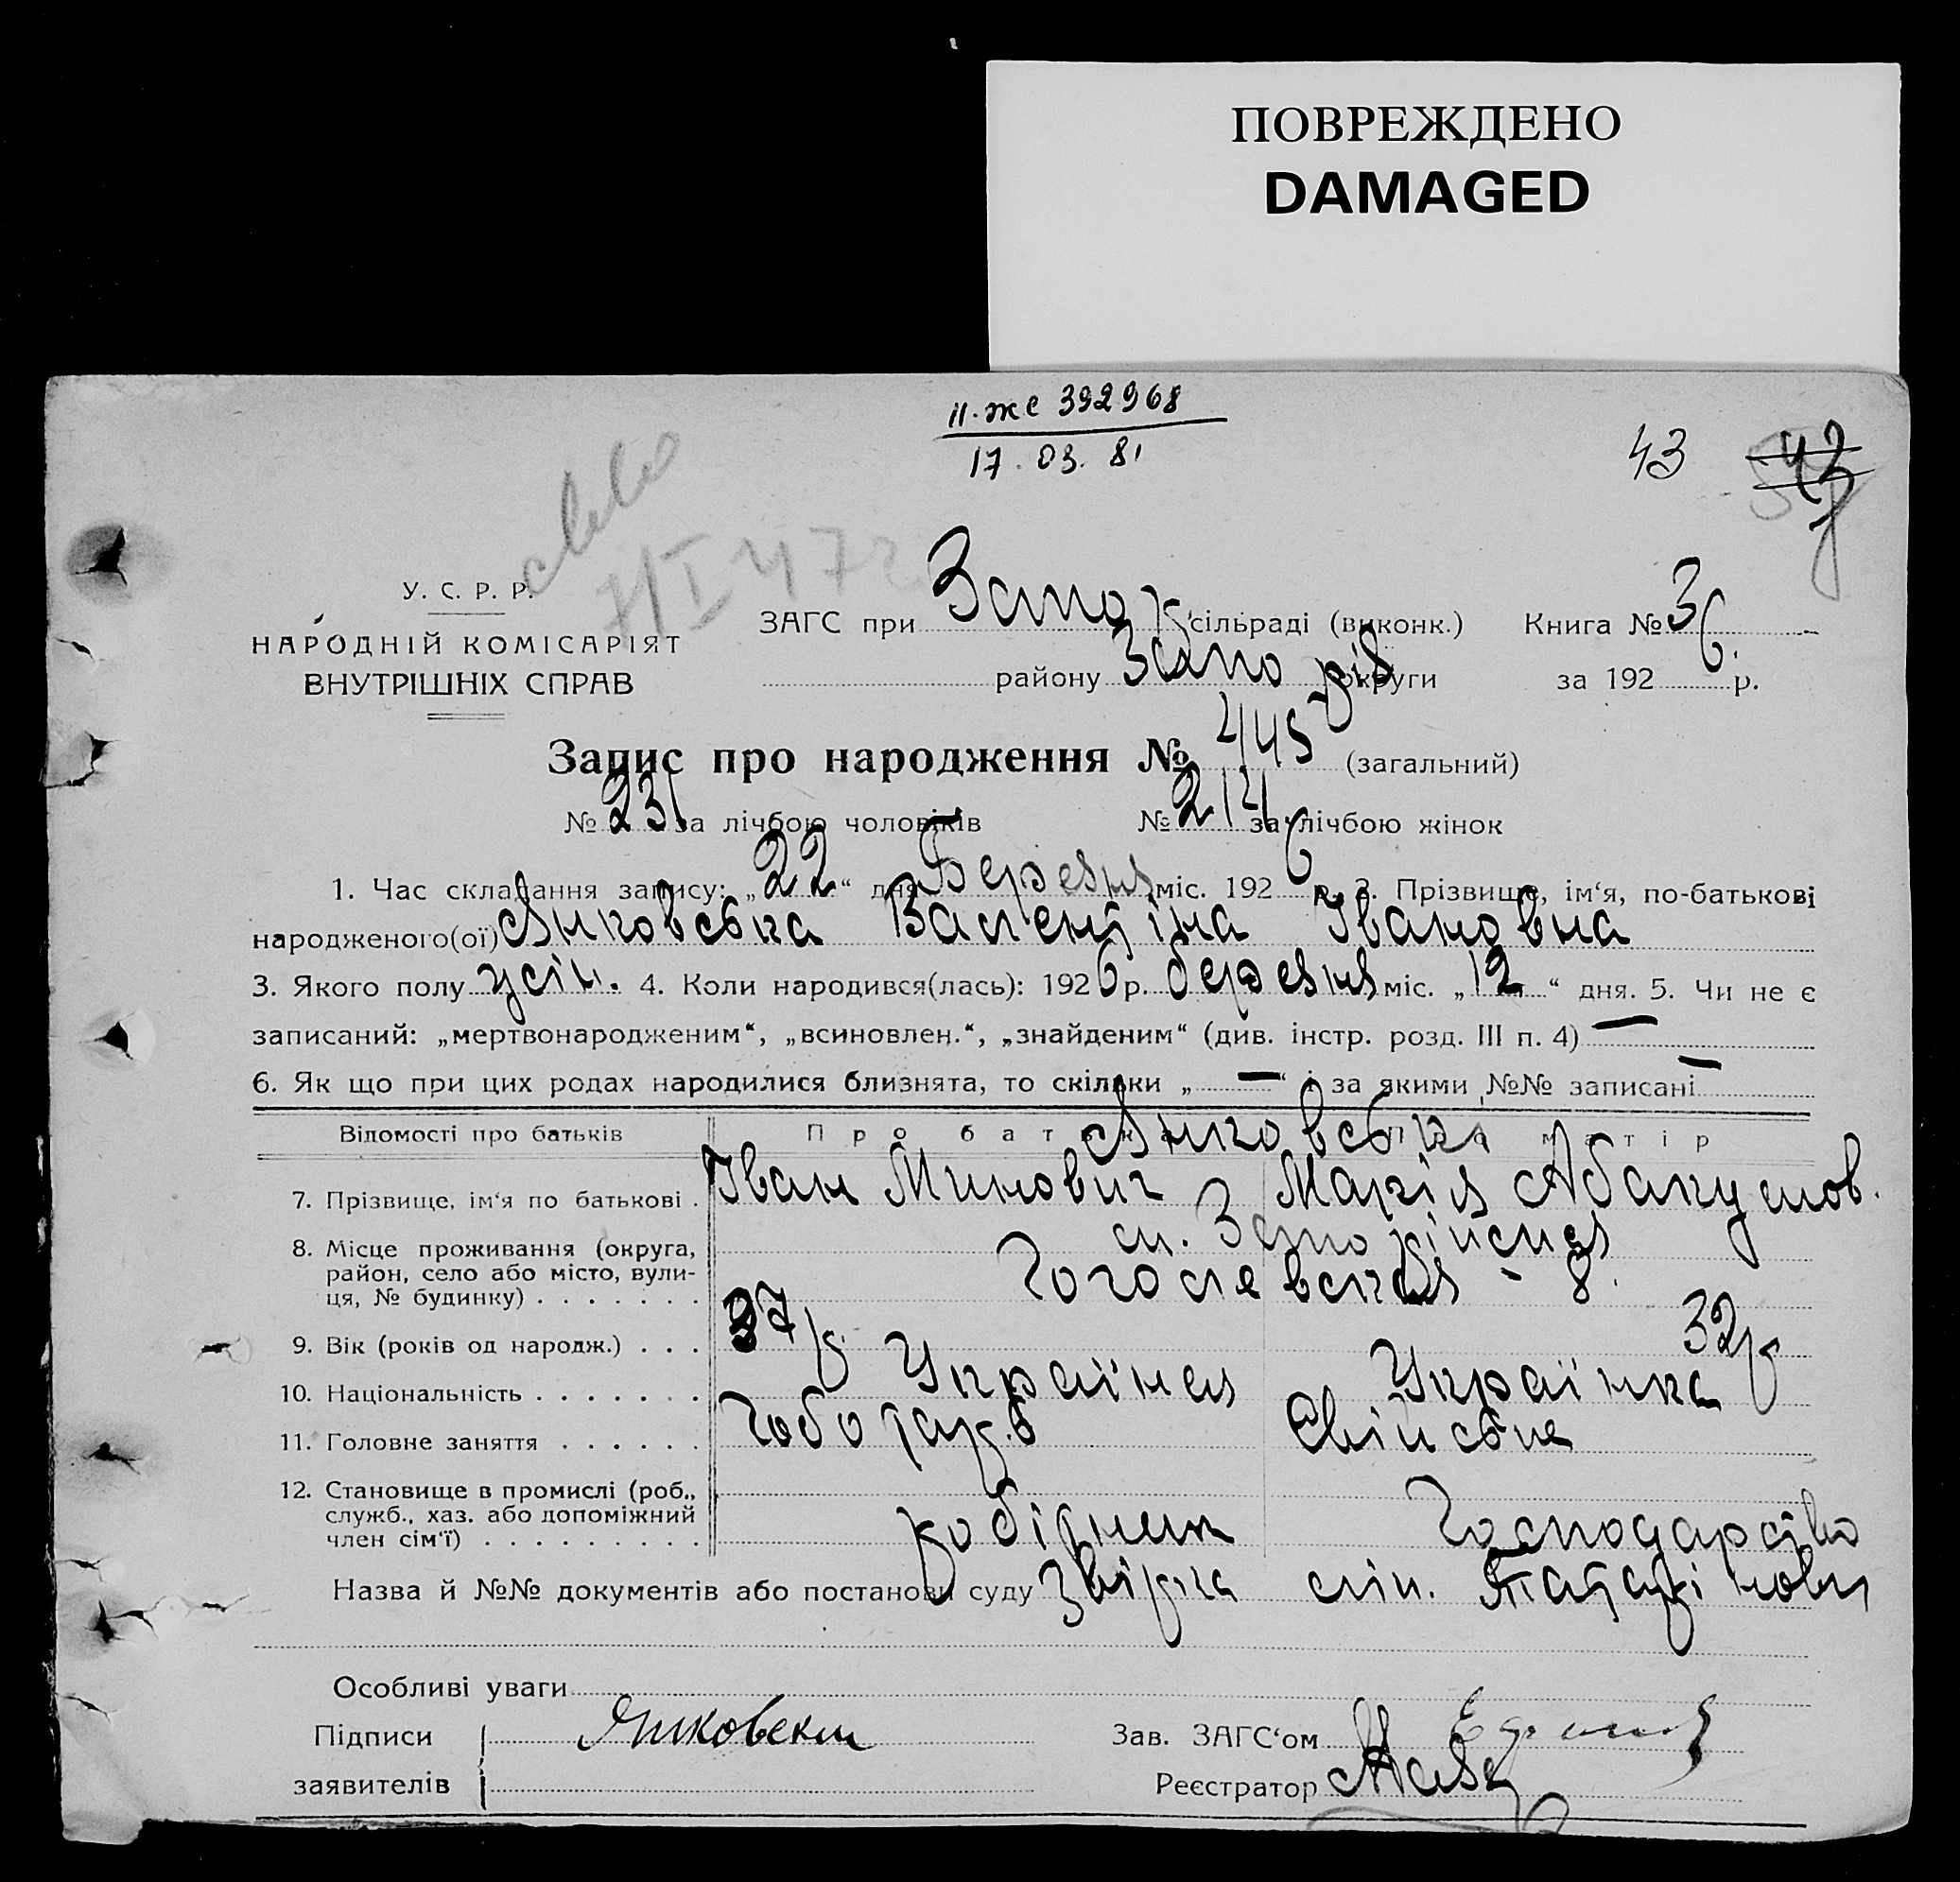 ПОВРЕЖДЕНО
DAMAGED
II-ЖС 392968
17.03.81
43
У. С. Р. Р.
НАРОДНІЙ КОМІСАРІЯТ
ВНУТРІШНІХ СПРАВ
ЗАГС при Запор сільраді (виконк.) Книга № 3
району Запоріз округи за 1926 р.
Запис про народження № 445 (загальний)
№ 231 за лічбою чоловіків № 214 за лічбою жінок
1. Час складання запису: „22“ дня Березня міс. 1926 р. 2. Прізвище, ім‘я, по-батькові
народженого(ої) Янковська Валентіна Івановна
3. Якого полу жін. 4. Коли народився(лась): 1926 р. березня міс. „12“ дня. 5. Чи не є
записаний: „мертвонародженим“, „всиновлен.“, „знайденим“ (див. інстр. розд. III п. 4) —
6. Як що при цих родах народилися близнята, то скільки „—“ і за якими №№ записані —
Відомості про батьків Про батька Про матір
Янковські
7. Прізвище, ім‘я по батькові . Іван Минович Марія Абакумов.
8. Місце проживання (округа,
район, село або місто, вули-
ця, № будинку) . . . . . . .
м. Запоріжжя
Гоголевская - 8.
9. Вік (років од народж.) . . . 37 р 32 р
10. Національність . . . . . . . Українец Українка
11. Головне заняття . . . . . . Свійське
12. Становище в промислі (роб.,
служб., хаз. або допоміжний
член сім‘ї) . . . . . . . . .
робітник Господарство
Назва й №№ документів або постанови суду
Особливі уваги
Підписи Янковский Зав. ЗАГС‘ом
заявителів Реєстратор